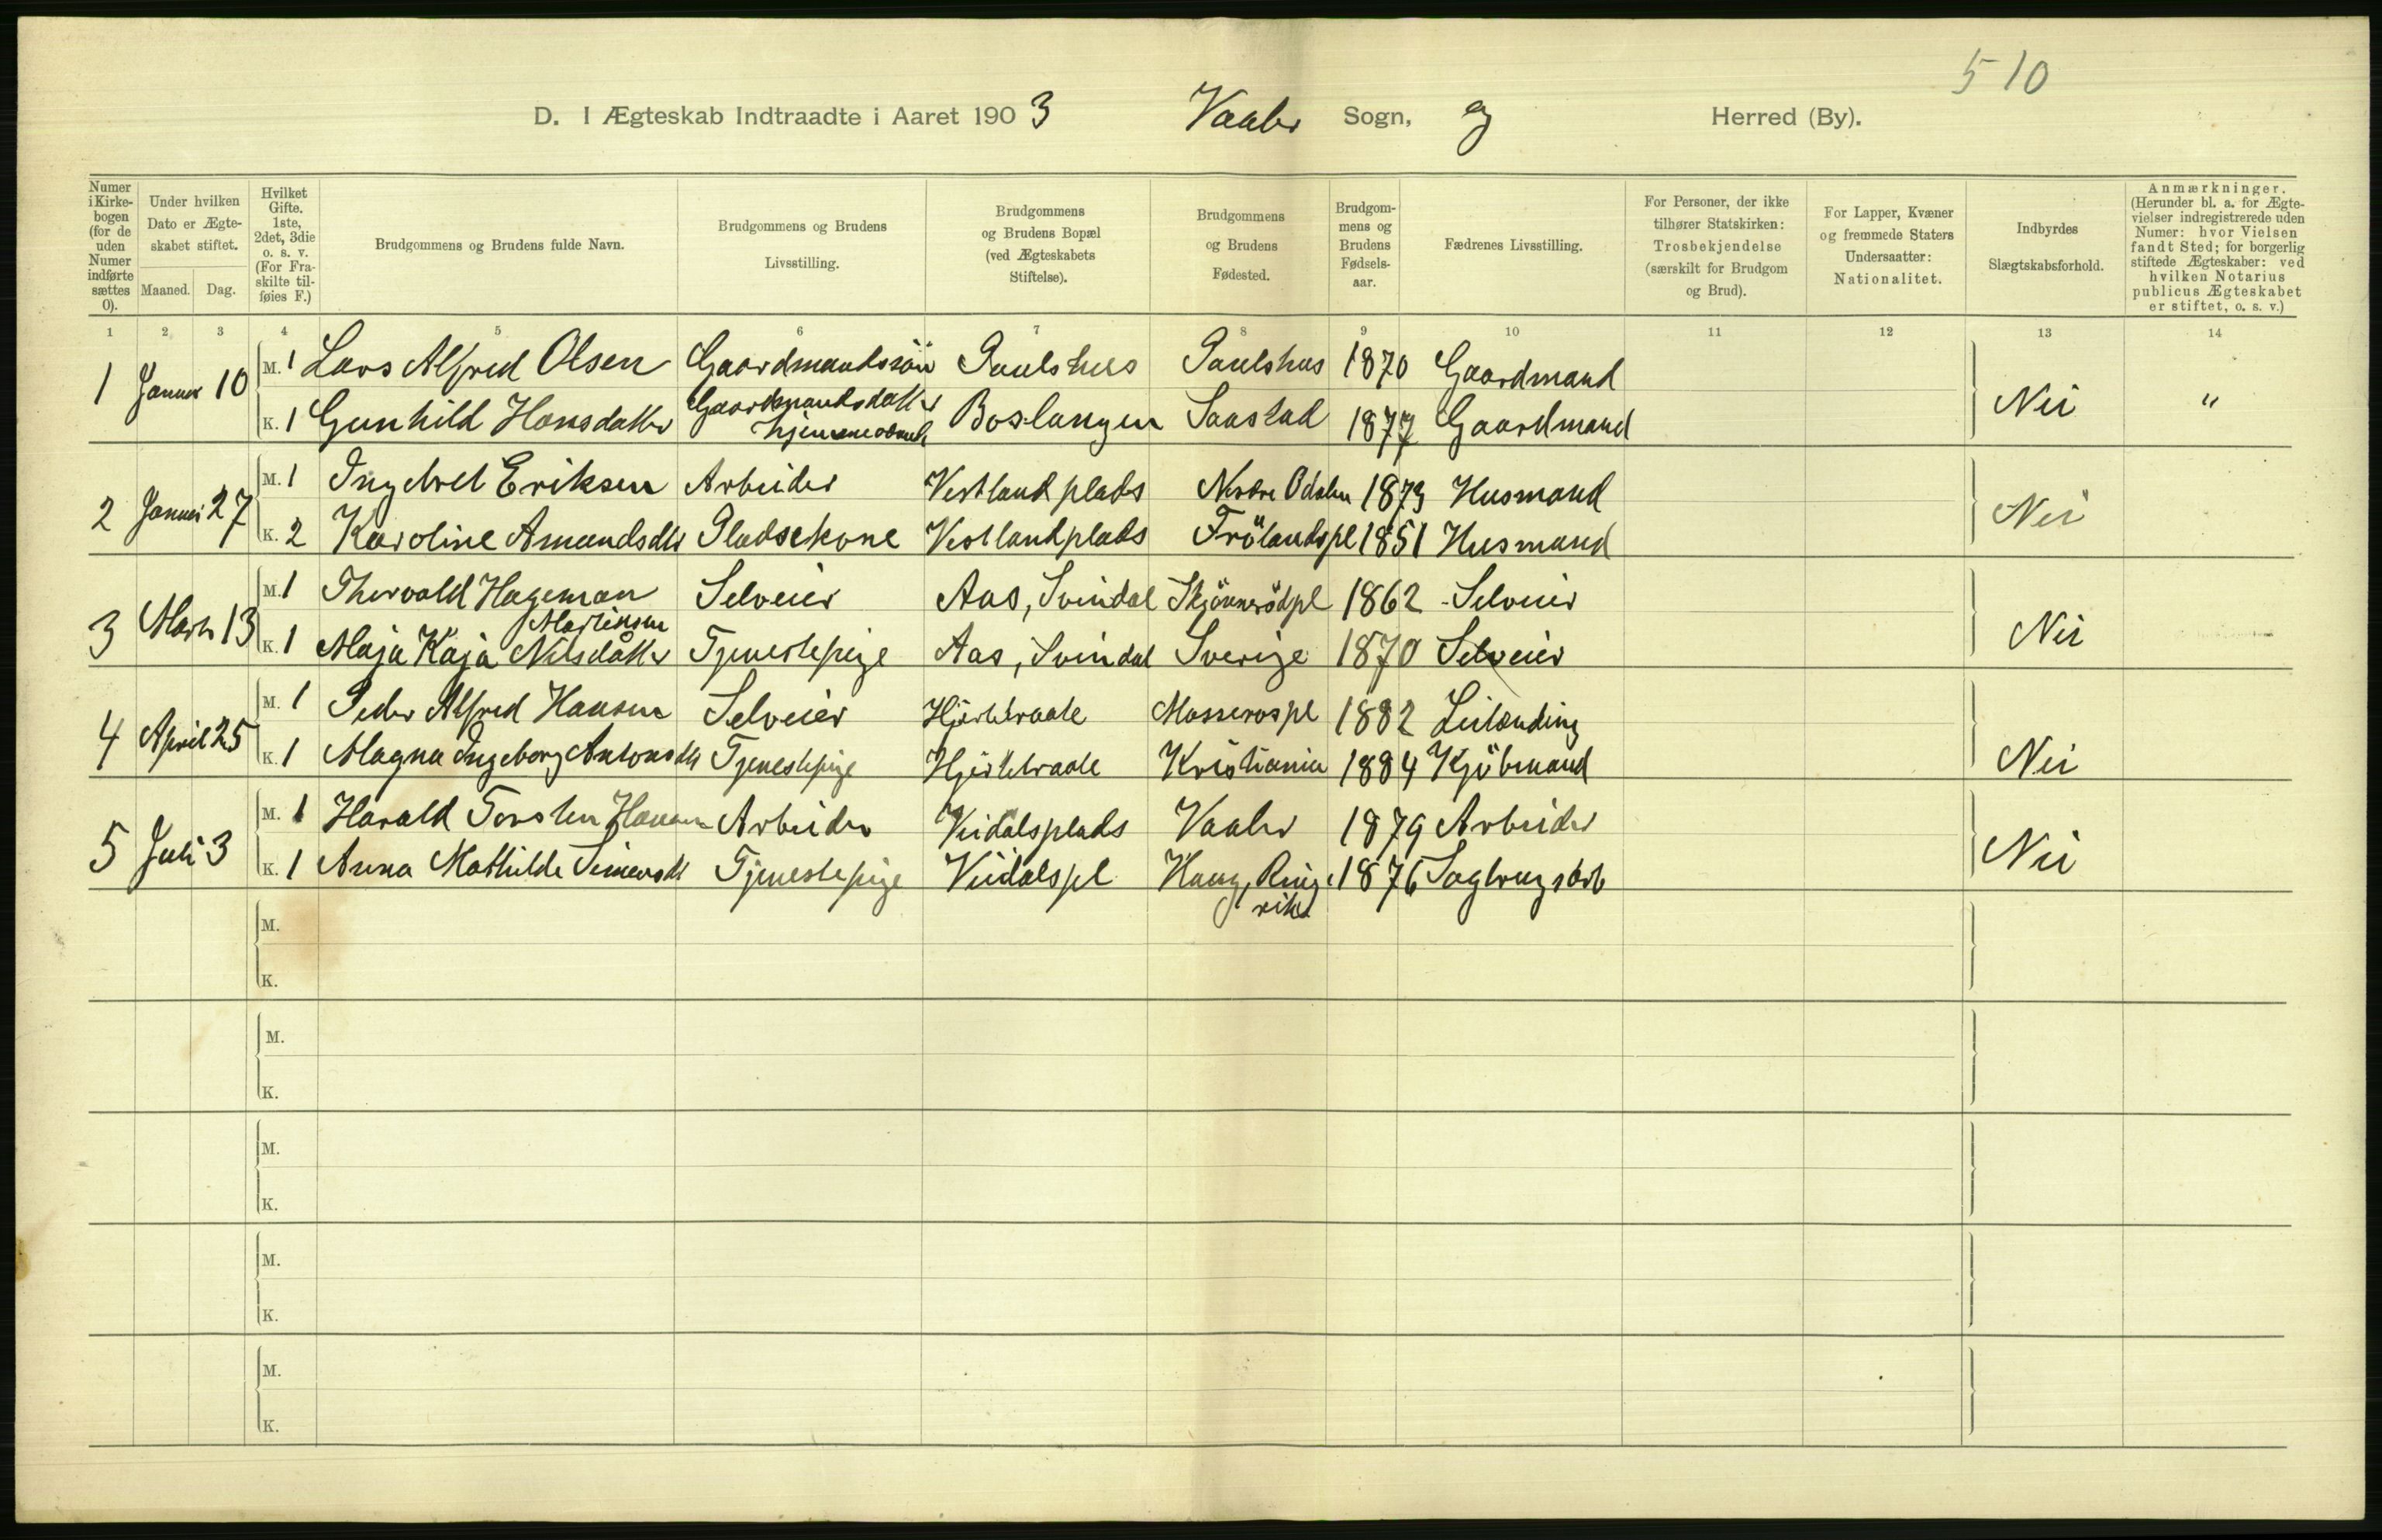 510
D. I Ægteskab Indtraadte i Aaret 1903 Vaaler Sogn, og Herred (By).
Numer i Kirke-bogen (for de uden Numer indførte sættes 0).
Under hvilken Dato er Ægte-skabet stiftet.
Maaned. Dag.
Hvilket Gifte. 1ste, 2det, 3die o. s. v. (For Fra-skilte til-føies F.)
Brudgommens og Brudens fulde Navn.
Brudgommens og Brudens Livsstilling.
Brudgommens og Brudens Bopæl (ved Ægteskabets Stiftelse).
Brudgommens og Brudens Fødested.
Brudgom-mens og Brudens Fødsels-aar.
Fædrenes Livsstilling.
For Personer, der ikke tilhører Statskirken: Trosbekjendelse (særskilt for Brudgom og Brud).
For Lapper, Kvæner og fremmede Staters Undersaatter: Nationalitet.
Indbyrdes Slægtskabsforhold.
Anmærkninger. (Herunder bl. a. for Ægte-vielser indregistrerede uden Numer: hvor Vielsen fandt Sted; for borgerlig stiftede Ægteskaber: ved hvilken Notarius publicus Ægteskabet er stiftet, o. s. v.)
1 2 3 4 5 6 7 8 9 10 11 12 13 14
1 Januar 10 M. 1 Lars Alfred Olsen Gaardmandssön Paulshus Paulshus 1870 Gaardmand
K. 1 Gunhild Hansdatter Gaardmandsdatter hjemmeværende Boslangen Saastad 1877 Gaardmand Nei "
2 Januar 27 M. 1 Ingebret Eriksen Arbeider Vestland plads Nordre Odalen 1879 Husmand
K. 2 Karoline Amundsdtr Pladsekone Vestlandplads Frölandspl 1851 Husmand Nei
3 Marts 13 M. 1 Thorvald Hageman Martinsen Selveier Aas, Svindal Skjönnerödpl 1862 Selveier
K. 1 Maja Kaja Nilsdatter Tjenestepige Aas, Svindal Sverige 1870 Selveier Nei
4 April 25 M. 1 Peder Alfred Hansen Selveier Mosserospl 1882 Leilænding
K. 1 Magna Ingeborg Antonsdtr Tjenestepige Kristiania 1884 Kjöbmand Nei
5 Juli 3 M. 1 Harald Torsten Hansen Arbeider Veidalsplads Vaaler 1879 Arbeider
K. 1 Anna Mathilde Simensdt Tjenestepige Veidalspl Haug, Ringerike 1876 Sagbrugsarb Nei
M.
K.
M.
K.
M.
K.
M.
K.
M.
K.